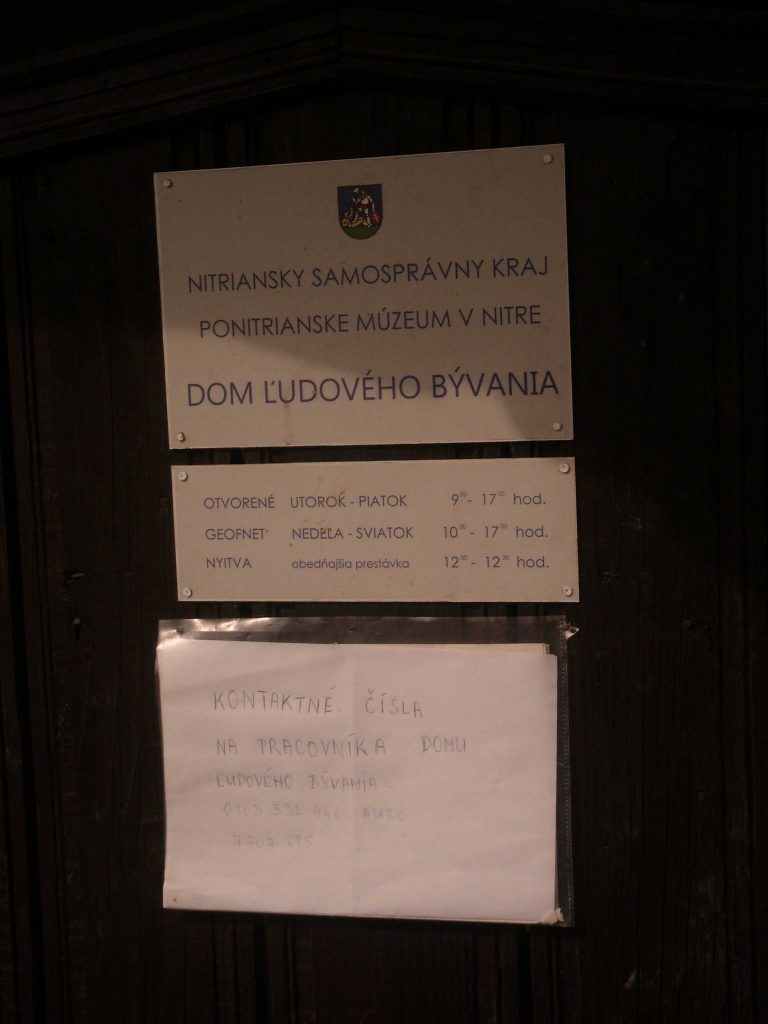 NITRIANSKY SAMOSPRÁVNY KRAJ
PONITRIANSKE MÚZEUM V NITRE
DOM ĽUDOVÉHO BÝVANIA
OTVORENÉ UTOROK - PIATOK 9⁰⁰ - 17⁰⁰ hod.
GEÖFNET NEDEĽA - SVIATOK 10⁰⁰ - 17⁰⁰ hod.
NYITVA obedňajšia prestávka 12⁰⁰ - 12³⁰ hod.
KONTAKTNÉ ČÍSLA
NA PRACOVNÍKA DOMU
ĽUDOVÉHO BÝVANIA
ALEBO